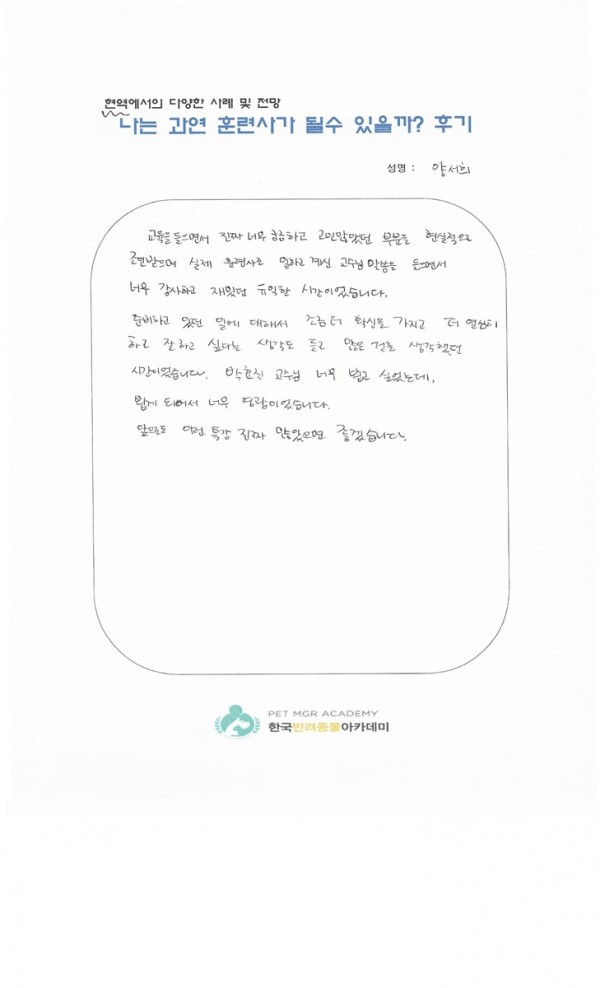 현역에서의 다양한 사례 및 전망
나는 과연 훈련사가 될수 있을까? 후기
성명 : 양서희
교육을 들으면서 진짜 너무 궁금하고 고민많았던 부분들 현실적으로
조언받으며 실제 훈련사로 일하고 계신 교수님 말씀을 들으면서
너무 감사하고 재밌었던 유익한 시간이었습니다.
준비하고 있던 일에 대해서 조금 더 확신을 가지고 더 열심히
하고 잘하고 싶다는 생각도 들고 많은 것을 생각했던
시간이었습니다. 박효진 교수님 너무 뵙고 싶었는데,
뵙게 되어서 너무 영광이었습니다.
앞으로도 이런 특강 진짜 많았으면 좋겠습니다.
PET MGR ACADEMY
한국반려동물아카데미